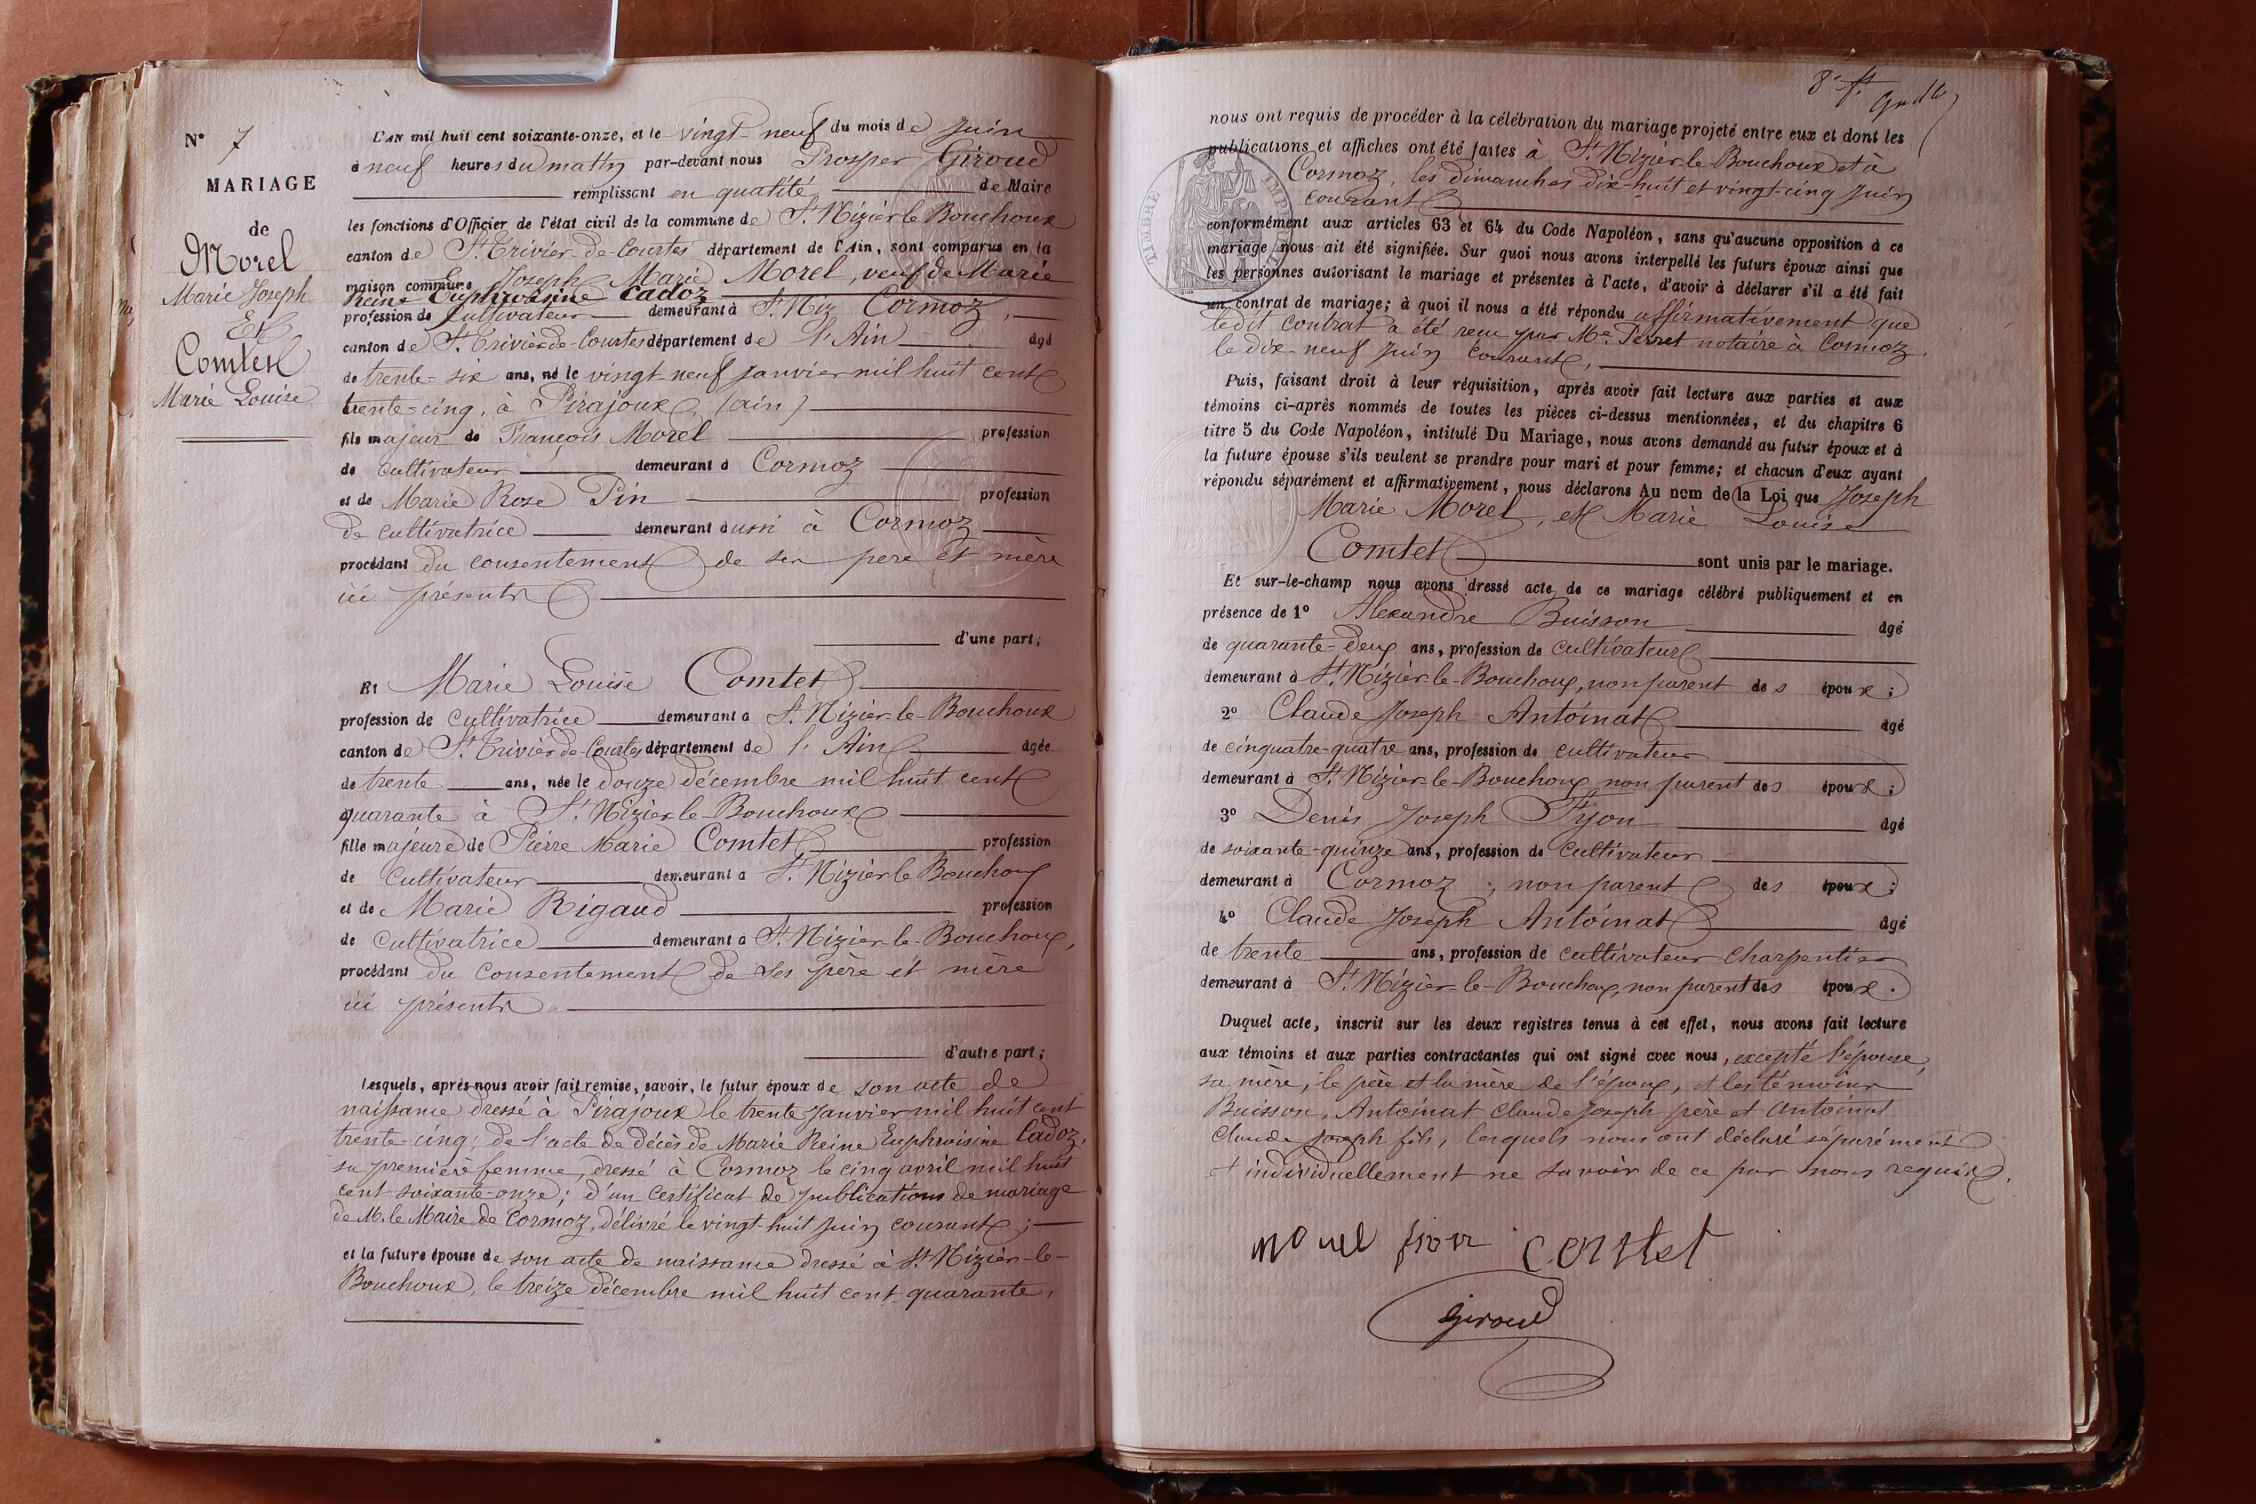 N° 7
MARIAGE
de
Morel
Marie Joseph
Et
Comtet
Marie Louise
L'AN mil huit cent soixante-onze, et le vingt-neuf du mois de Juin
à neuf heures du matin par-devant nous Prosper Giroud
remplissant en qualité de Maire
les fonctions d'Officier de l'état civil de la commune de St Nizier le Bouchoux
canton de St Trivier-de-Courtes département de l'Ain, sont comparus en la
maison commune Joseph Marie Morel, veuf de Marie
Reine Euphroisine Cadoz
profession de Cultivateur demeurant à St Niz Cormoz,
canton de St Trivier-de-Courtes département de l'Ain âgé
de trente-six ans, né le vingt-neuf Janvier mil huit cent
trente-cinq, à Pirajoux, (ain)
fils majeur de François Morel profession
de cultivateur demeurant à Cormoz
et de Marie Rose Pin profession
de cultivatrice demeurant aussi à Cormoz
procédant du consentement de ses père et mère
ici présents
d'une part;
Et Marie Louise Comtet
profession de cultivatrice demeurant à St Nizier-le-Bouchoux
canton de St Trivier de-Courtes département de l'Ain âgée
de trente ans, née le douze décembre mil huit cent
quarante à St Nizier-le-Bouchoux
fille majeure de Pierre Marie Comtet profession
de Cultivateur demeurant à St Nizier-le Bouchoux
et de Marie Rigaud profession
de cultivatrice demeurant à St Nizier-le-Bouchoux,
procédant du consentement de ses père et mère
ici présents
d'autre part;
Lesquels, après nous avoir fait remise, savoir, le futur époux de son acte de
naissance dressé à Pirajoux le trente Janvier mil huit cent
trente-cinq; de l'acte de décès de Marie Reine Euphroisine Cadoz,
sa première femme, dressé à Cormoz le cinq avril mil huit
cent soixante-onze; d'un certificat de publications de mariage
de M. le Maire de Cormoz, délivré le vingt-huit Juin courant;
et la future épouse de son acte de naissance dressé à St Nizier-le-
Bouchoux, le treize décembre mil huit cent quarante,
8e ft.
nous ont requis de procéder à la célébration du mariage projeté entre eux et dont les
publications et affiches ont été faites à St Nizier-le-Bouchoux et à
Cormoz, les dimanches dix-huit et vingt-cinq Juin
courant
TIMBRE IMPERIAL
conformément aux articles 63 et 64 du Code Napoléon, sans qu'aucune opposition à ce
mariage nous ait été signifiée. Sur quoi nous avons interpellé les futurs époux ainsi que
les personnes autorisant le mariage et présentes à l'acte, d'avoir à déclarer s'il a été fait
un contrat de mariage; à quoi il nous a été répondu affirmativement que
ledit contrat a été reçu par Me Perret notaire à Cormoz
le dix-neuf Juin courant,
Puis, faisant droit à leur réquisition, après avoir fait lecture aux parties et aux
témoins ci-après nommés de toutes les pièces ci-dessus mentionnées, et du chapitre 6
titre 5 du Code Napoléon, intitulé Du Mariage, nous avons demandé au futur époux et à
la future épouse s'ils veulent se prendre pour mari et pour femme; et chacun d'eux ayant
répondu séparément et affirmativement, nous déclarons Au nom de la Loi que Joseph
Marie Morel, et Marie Louise
Comtet sont unis par le mariage.
Et sur-le-champ nous avons dressé acte de ce mariage célébré publiquement et en
présence de 1° Alexandre Buisson âgé
de quarante-deux ans, profession de cultivateur
demeurant à St Nizier-le-Bouchoux, non parent des époux;
2° Claude Joseph Antoinat âgé
de cinquatre-quatre ans, profession de cultivateur
demeurant à St Nizier-le-Bouchoux non parent des époux;
3° Denis Joseph Fyon âgé
de soixante-quinze ans, profession de cultivateur
demeurant à Cormoz, non parent des époux;
4° Claude Joseph Antoinat âgé
de trente ans, profession de cultivateur charpentier
demeurant à St Nizier-le-Bouchoux, non parent des époux.
Duquel acte, inscrit sur les deux registres tenus à cet effet, nous avons fait lecture
aux témoins et aux parties contractantes qui ont signé avec nous, excepté l'épouse,
sa mère, le père et la mère de l'époux, et les témoins
Buisson, Antoinat Claude Joseph père et Antoinat
Claude Joseph fils, lesquels nous ont déclaré séparément
et individuellement ne savoir de ce par nous requis.
morel fion comtet
Giroud